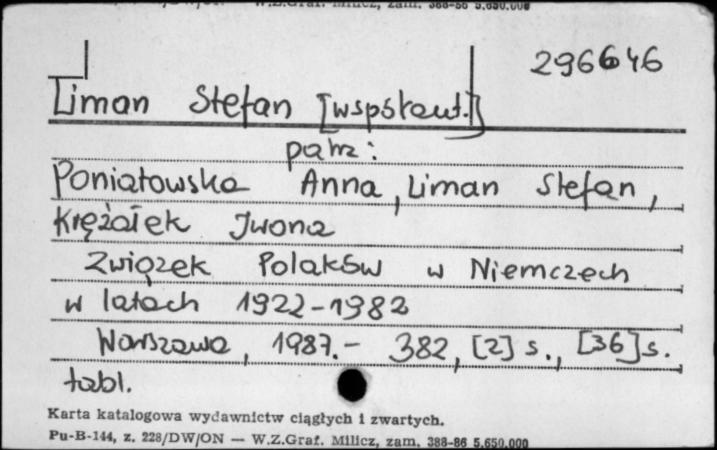 296646
Liman Stefan [współaut.]
patrz:
Poniatowska Anna, Liman Stefan,
Krężałek Iwona
Związek Polaków w Niemczech
w latach 1922-1982
Warszawa, 1987.- 382, [2] s., [36] s.
tabl.
Karta katalogowa wydawnictw ciągłych i zwartych.
Pu-B-144, z. 228/DW/ON — W.Z.Graf. Milicz, zam. 388-86 5.650.000